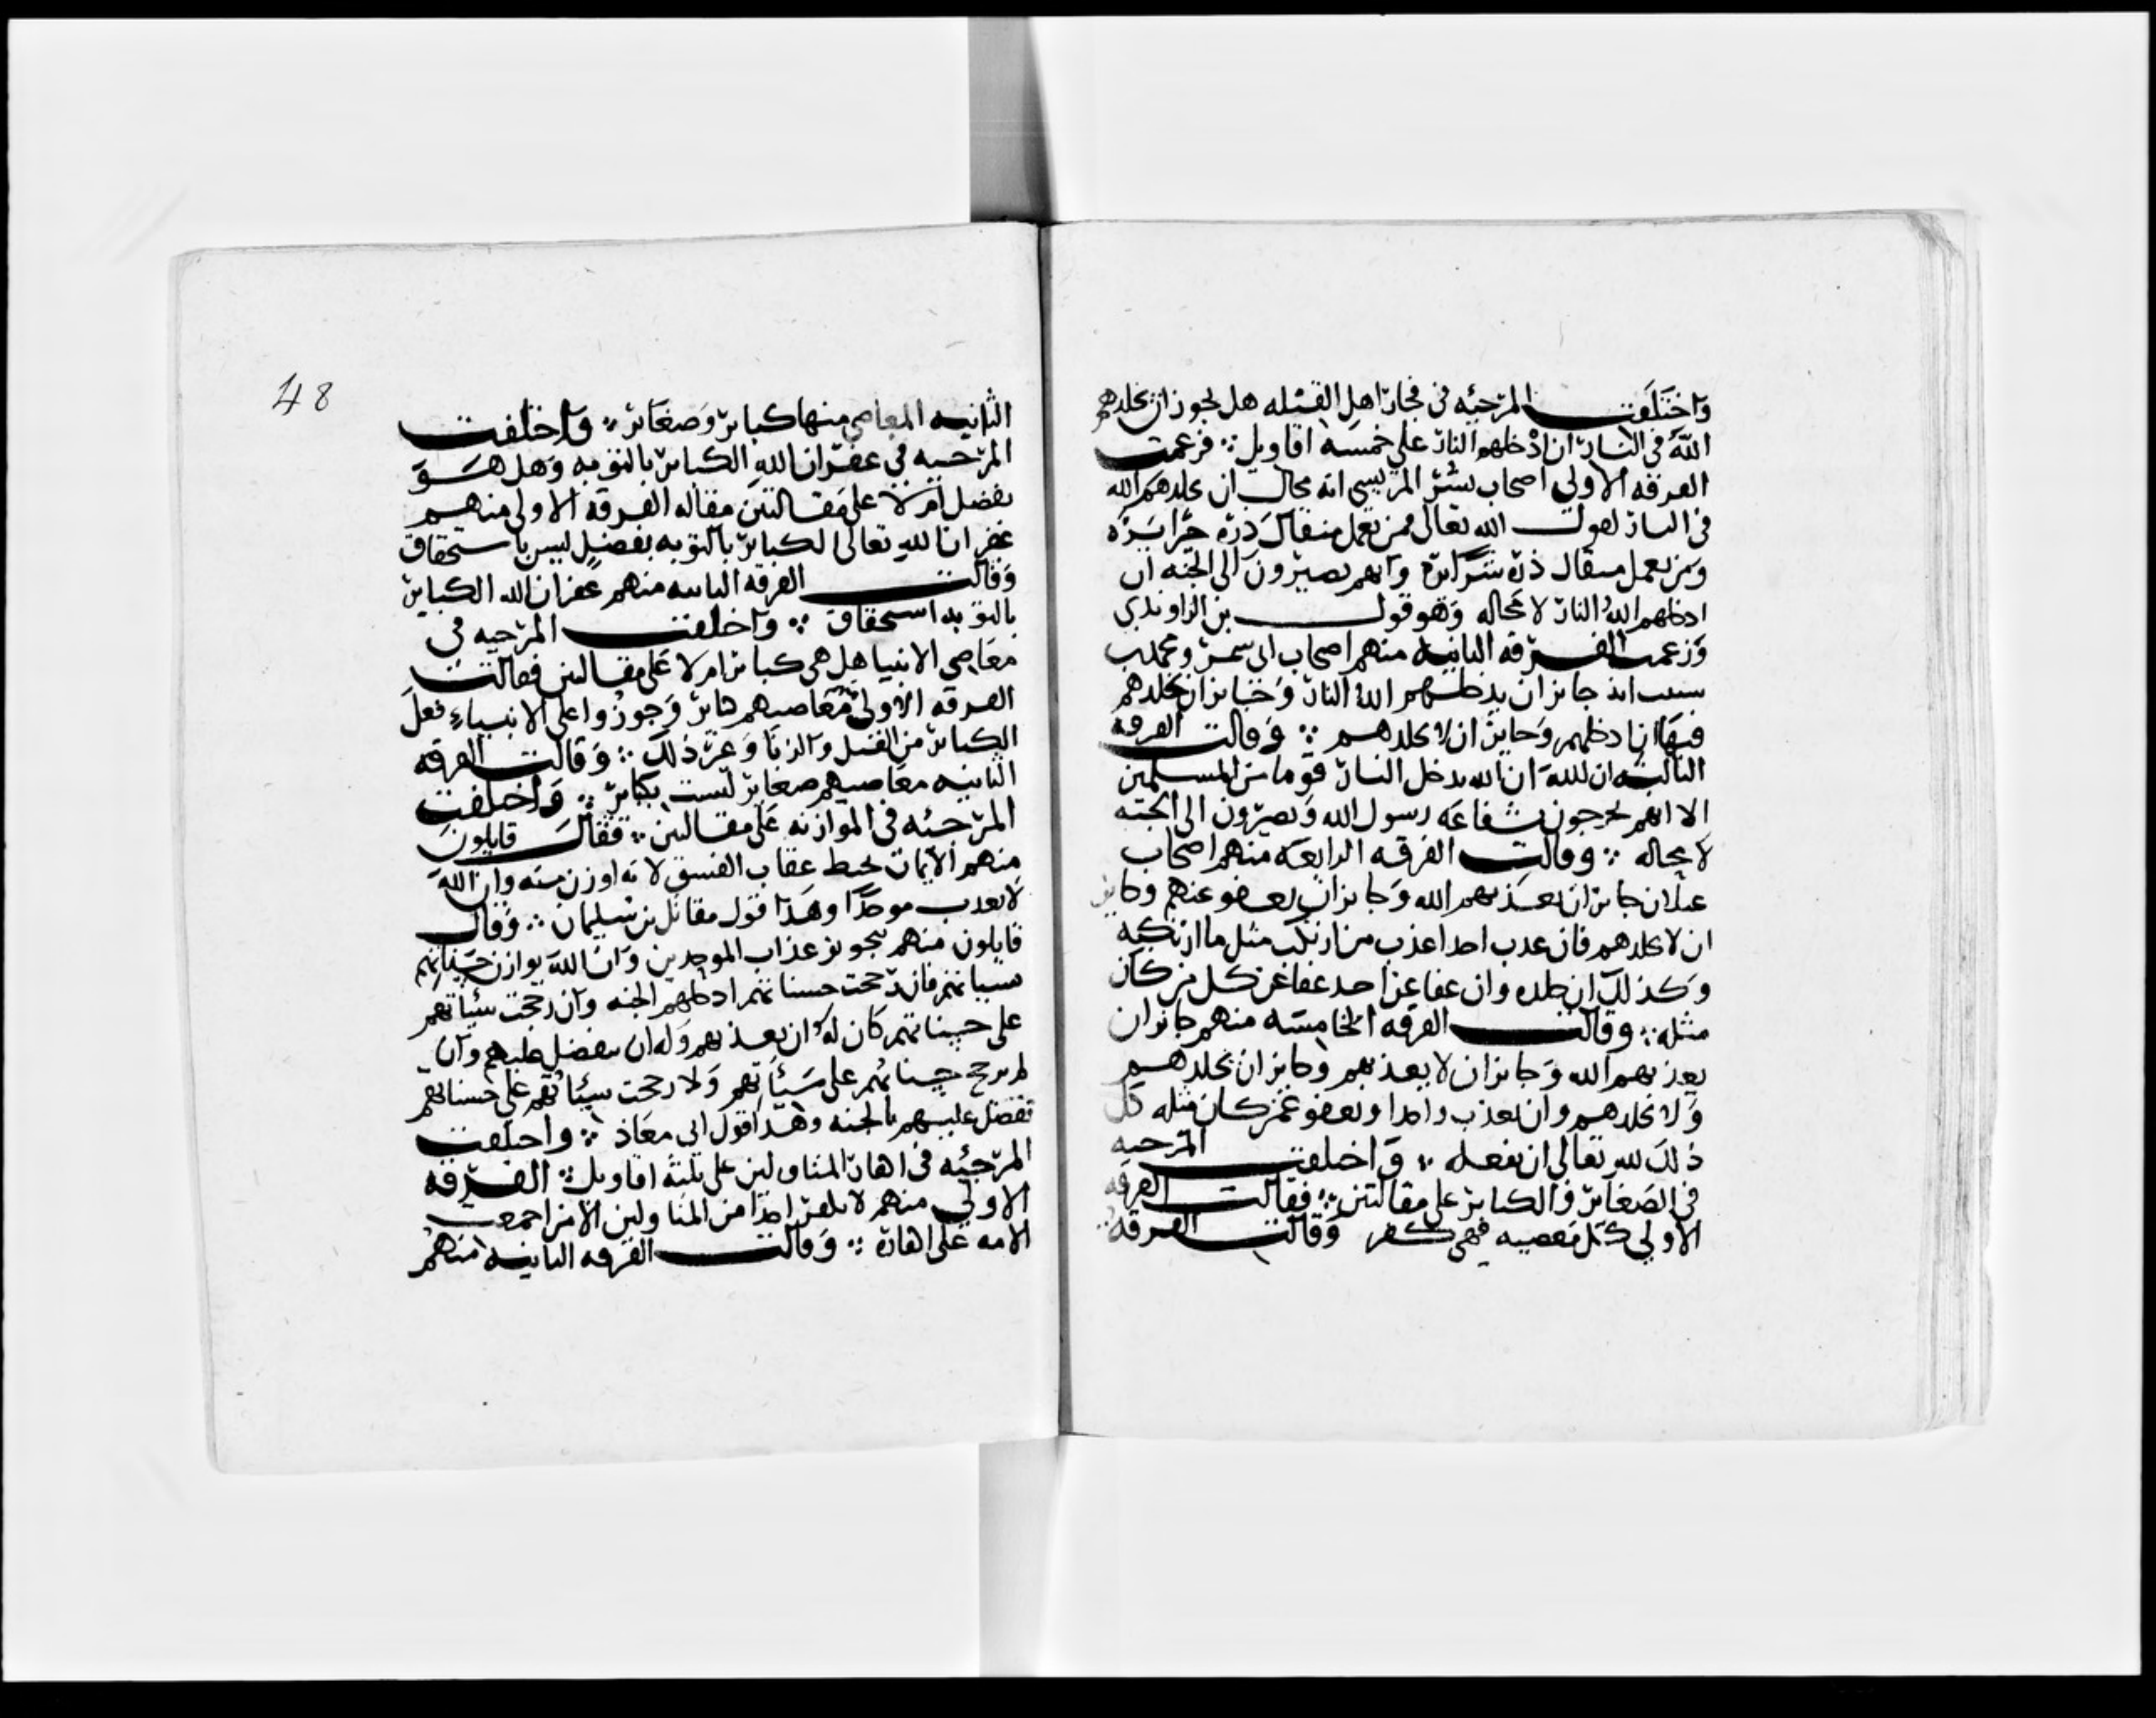 واختلفت المرجئه في فجار اهل القبله هل يجوز ان يخلدهم
الله في النار ان ادخلهم النار على خمسه اقاويل فزعمت
الفرقه الاولى اصحاب بشر المريسي انه محال ان يخلدهم الله
في النار لقول الله تعالى فمن يعمل مثقال ذره خيرا يره
ومن يعمل مثقال ذره شرا يره وانهم يصيرون الى الجنه ان
ادخلهم الله النار لا محاله وهو قول بن الراوندي
وزعمت الفرقه الثانيه منهم اصحاب ابي شمر ومحمد بن
شبيب انه جايز ان يدخلهم الله النار وجايز ان يخلدهم
فيها ان ادخلهم وجايز ان لا يخلدهم وقالت الفرقه
الثالثه ان الله يدخل النار قوما من المسلمين
الا انهم يخرجون بشفاعه رسول الله ويصيرون الى الجنه
لا محاله وقالت الفرقه الرابعه منهم اصحاب
غيلان جايز ان يعذبهم الله وجايز ان يعفو عنهم وجايز
ان لا يخلدهم فان عذب احدا عذب من ارتكب مثل ما ارتكبه
وكذلك ان خلده وان عفا عن احد عفا عن كل من كان
مثله وقالت الفرقه الخامسه منهم جايز ان
يعذبهم الله وجايز ان لا يعذبهم وجايز ان يخلدهم
ولا يخلدهم وان يعذب واحدا ويعفو عمن كان مثله كل
ذلك لله تعالى ان يفعله واختلفت المرجيه
في الصغاير والكباير على مقالتين فقالت الفرقه
الاولى كل معصيه فهي كفر وقالت الفرقه
48
الثانيه المعاصي منها كباير وصغاير واختلفت
المرجيه في غفران الله الكباير بالتوبه وهل هو
تفضل ام لا على مقالتين مقاله الفرقه الاولى منهم
غفران الله تعالى الكباير بالتوبه تفضل ليس باستحقاق
وقالت الفرقه الثانيه منهم غفران الله الكباير
بالتوبه استحقاق واختلفت المرجيه في
معاصي الانبيا هل هي كباير ام لا على مقالتين فقالت
الفرقه الاولى معاصيهم كباير وجوزوا على الانبياء فعل
الكباير من القتل والزنا وغير ذلك وقالت الفرقه
الثانيه معاصيهم صغاير ليست بكباير واختلفت
المرجئه في الموازنه على مقالتين فقال قايلون
منهم الايمان يحبط عقاب الفسق لانه اوزن منه وان الله
لا يعذب موحدا وهذا قول مقاتل بن سليمان وقال
قايلون منهم بتجويز عذاب الموحدين وان الله يوازن حسناتهم
بسيياتهم فان رجحت حسناتهم ادخلهم الجنه وان رجحت سيئاتهم
على حسناتهم كان له ان يعذبهم وله ان يتفضل عليهم وان
لم ترجح حسناتهم على سيئاتهم ولا رجحت سيئاتهم على حسناتهم
تفضل عليهم بالجنه وهذا قول ابي معاذ واختلفت
المرجئه في اكفار المتاولين على ثلثه اقاويل الفرقه
الاولى منهم لا نكفر احدا من المتاولين الا من اجمعت
الامه على اكفاره وقالت الفرقه الثانيه منهم